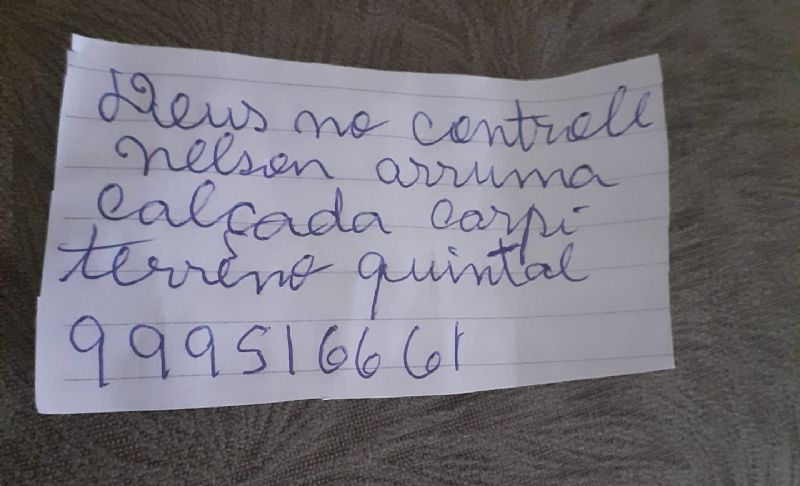 Deus no controle
nelson arruma
calçada carpi
terreno quintal
999516661